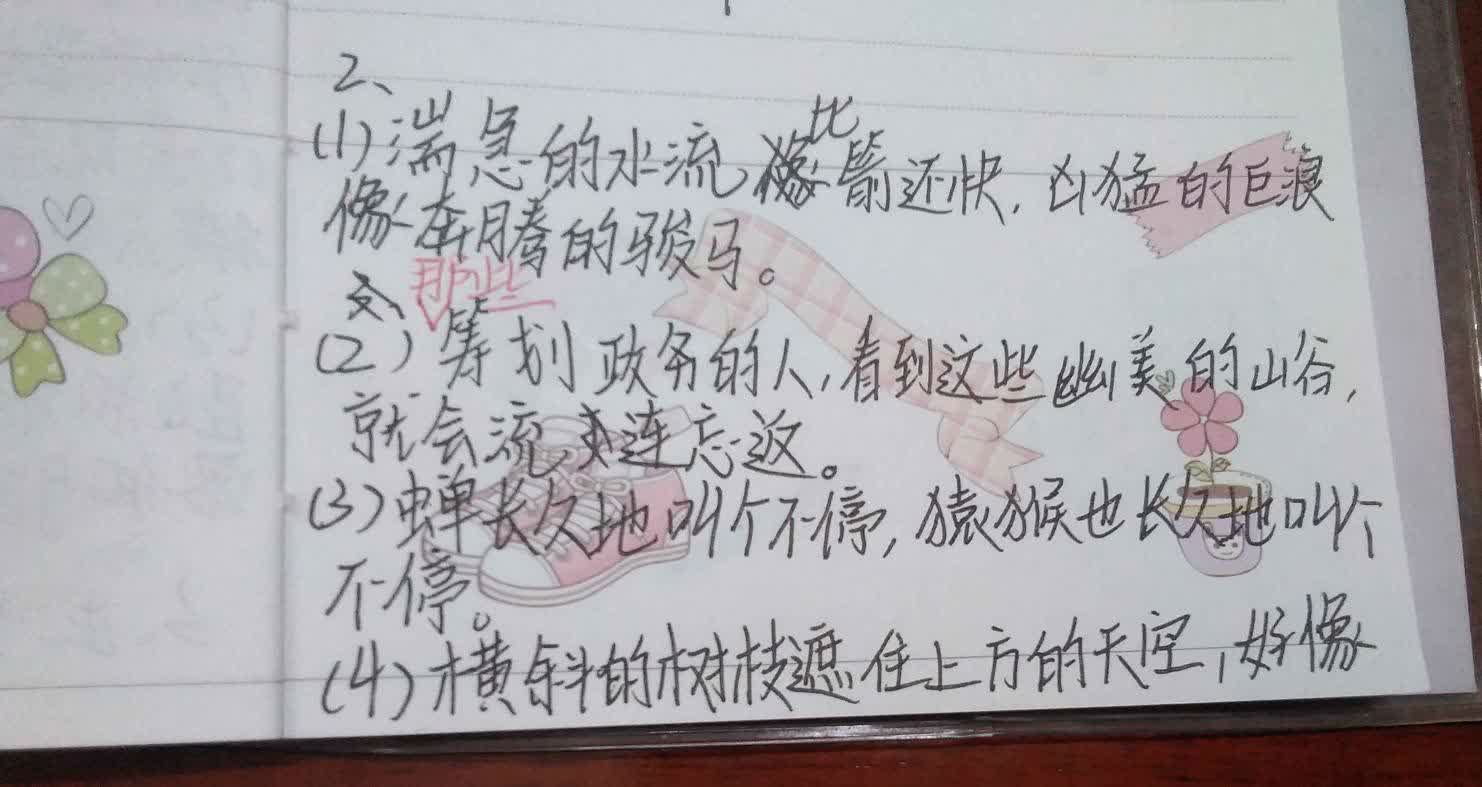 2、
(1)湍急的水流比箭还快,凶猛的巨浪
像奔腾的骏马。
那些
(2)筹划政务的人,看到这些幽美的山谷,
就会流连忘返。
(3)蝉长久地叫个不停,猿猴也长久地叫个
不停。
(4)横斜的树枝遮住上方的天空,好像